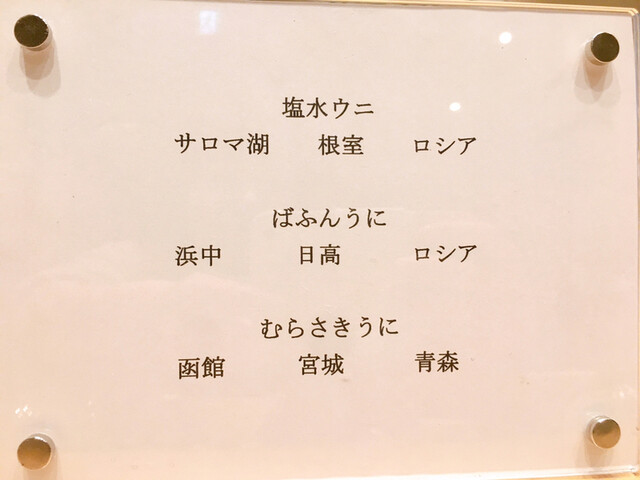 塩水ウニ
サロマ湖 根室 ロシア
ばふんうに
浜中 日高 ロシア
むらさきうに
函館 宮城 青森